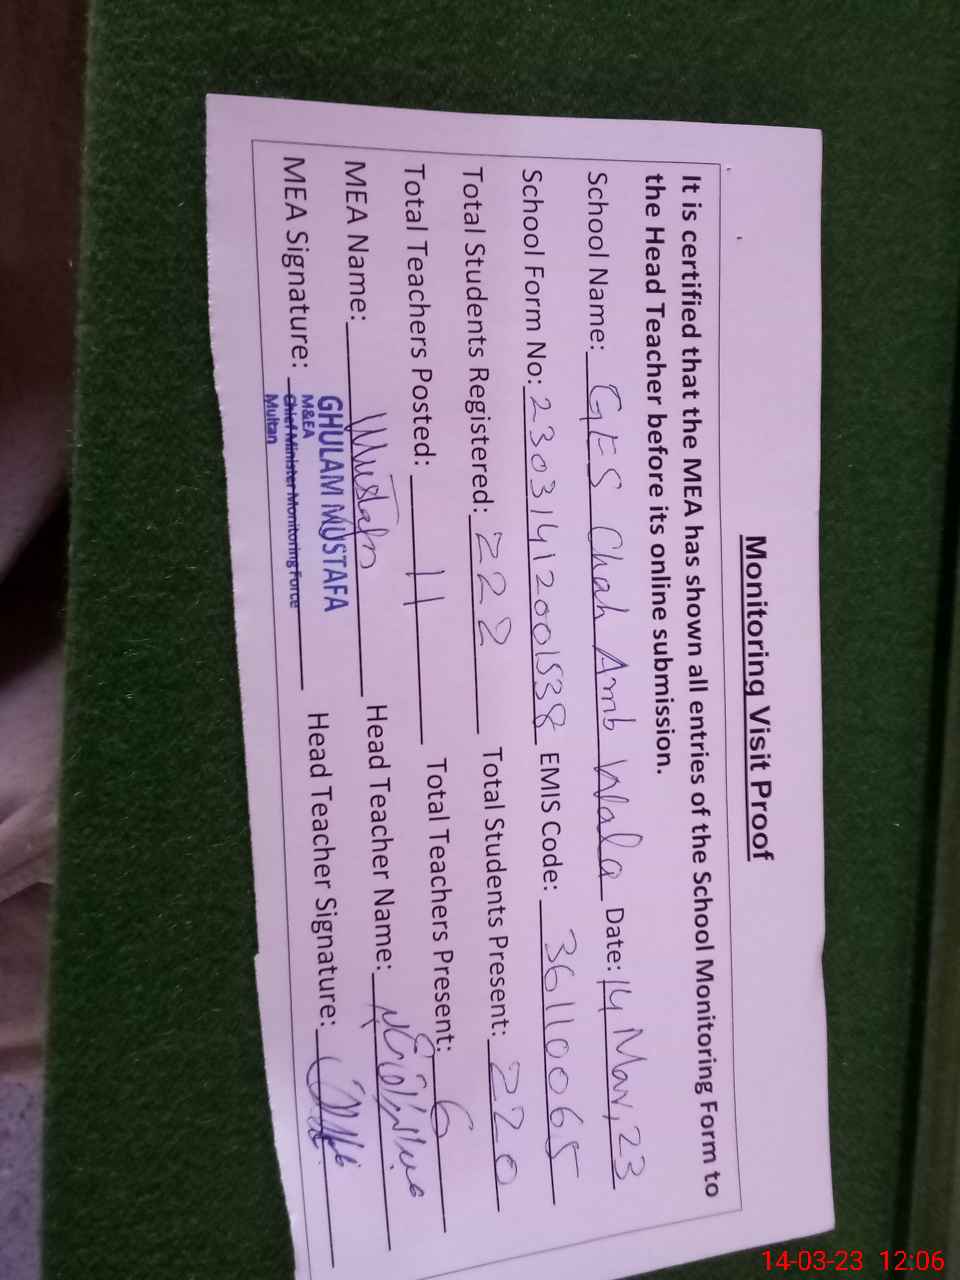 Monitoring Visit Proof
It is certified that the MEA has shown all entries of the School Monitoring Form to
the Head Teacher before its online submission.
School Name: GES Chah Amb Wala Date: 14 Mar, 23
School Form No: 23031412001538 EMIS Code: 36110065
Total Students Registered: 222 Total Students Present: 220
Total Teachers Posted: 11 Total Teachers Present: 6
MEA Name: Mustafa Head Teacher Name:
MEA Signature: Head Teacher Signature:
GHULAM MUSTAFA
M&EA
Chief Minister Monitoring Force
Multan
14-03-23 12:06